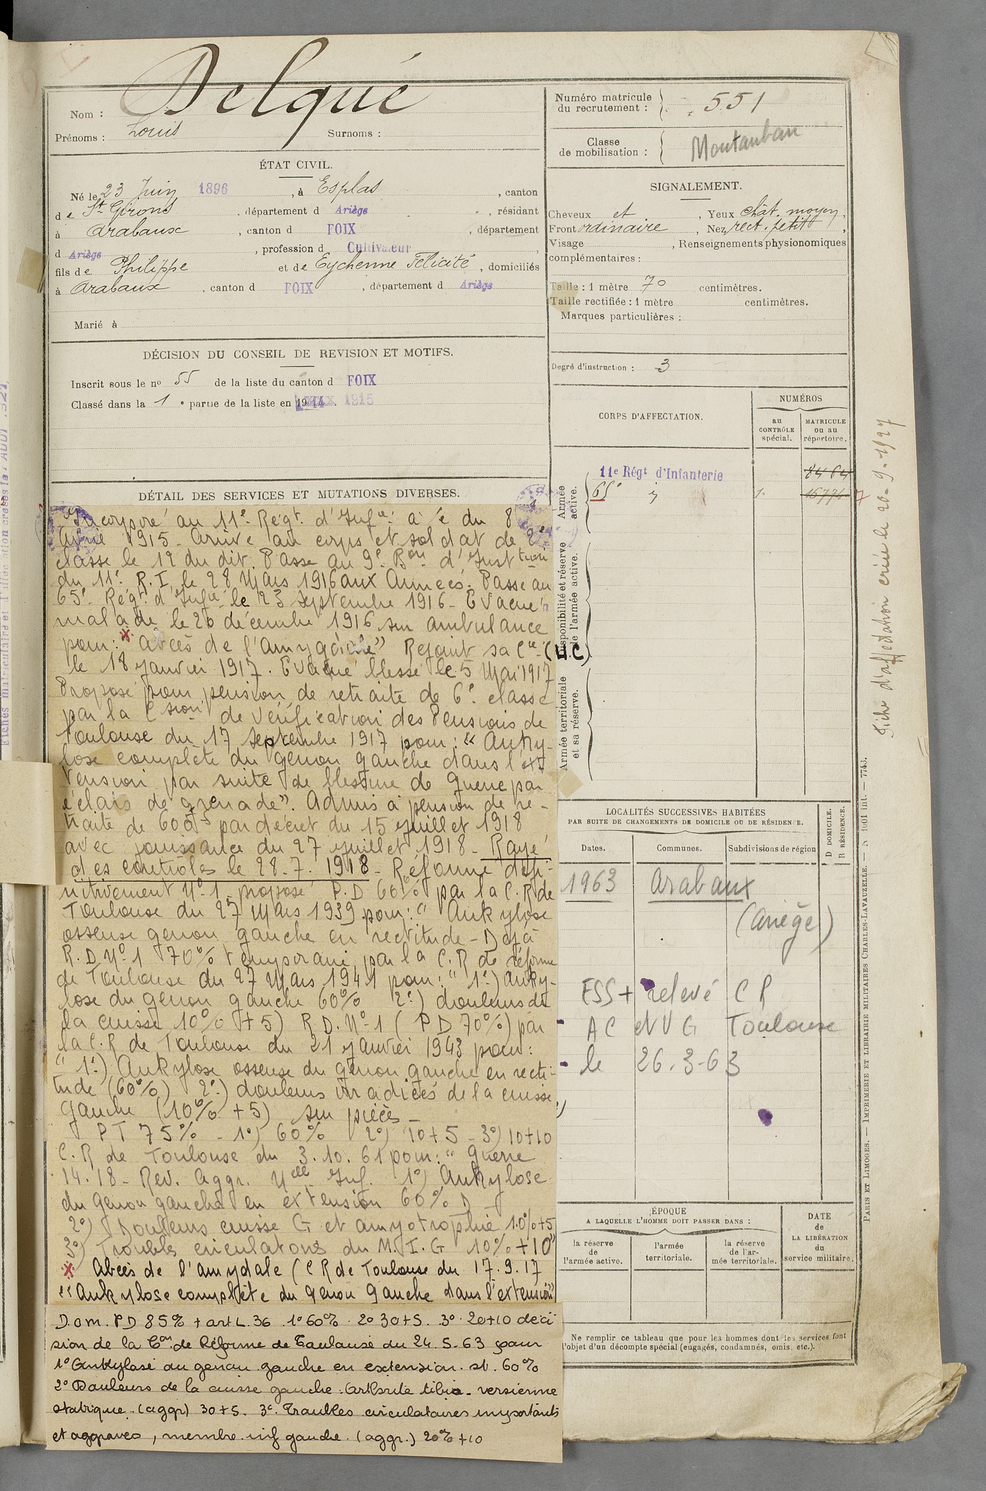 Nom : Delqué
Prénoms : Louis Surnoms :
ÉTAT CIVIL.
Né le 23 Juin 1896, à Esplas, canton
de St Girons, département d Ariège, résidant
à Arabaux, canton d FOIX, département
d Ariège, profession d Cultivateur
fils de Philippe et de Eychenne Félicité, domiciliés
à Arabaux, canton d FOIX, département d Ariège
Marié à
DÉCISION DU CONSEIL DE REVISION ET MOTIFS.
Inscrit sous le no 55 de la liste du canton d FOIX
Classé dans la 1e partie de la liste en 1915
DÉTAIL DES SERVICES ET MUTATIONS DIVERSES.
Incorporé au 11e Régt d'Infie à c/ du 8
Avril 1915. Arrivé au corps et soldat de 2e
classe le 12 du dit. Passe au 9e Bon d'Instruction
du 11e R.I. le 28 Mars 1916 aux Armées. Passe au
65e Régt d'Infie le 23 septembre 1916. Evacué
malade le 26 décembre 1916 sur ambulance
pour : "Abcès de l'amygdale" Rejoint sa Cie (U.C)
le 18 janvier 1917. Evacué blessé le 5 Mai 1917
Proposé pour pension de retraite de 6e classe
par la Csion de Vérification des Pensions de
Toulouse du 17 septembre 1917 pour : "Anky-
lose complète du genou gauche dans l'ex-
tension par suite de blessure de guerre par
éclats de grenade". Admis à pension de re-
traite de 600f par décret du 15 juillet 1918
avec jouissance du 27 juillet 1918 - Rayé
des contrôles le 28.7.1918 - Réformé défi-
nitivement No 1 proposé P.D 60% par la C.R de
Toulouse du 27 Mars 1939 pour : "Ankylose
osseuse genou gauche en rectitude - Déjà
R.D. No 1 70% temporaire par la C.R de réforme
de Toulouse du 27 Mars 1941 pour : "1o) Anky-
lose du genou gauche 60% 2o) douleurs de
la cuisse 10% +5) R.D. No 1 (PD 70%) par
la C.R de Toulouse du 21 janvier 1943 pour :
"1o) Ankylose osseuse du genou gauche en recti-
tude (60%) 2o) douleurs irradiées de la cuisse
gauche (10% +5) sur pièces -
PT 75% - 1o) 60% 2o) 10+5 - 3o) 10+10
C.R de Toulouse du 3.10.61 pour : "Guerre
14.18 - Rev. Aggr. Inf. 1o) Ankylose
du genou gauche en extension 60% D
2o) Douleurs cuisse G et amyotrophie 10%+5
3o) Troubles circulatoires du M.I.G 10% +10"
x Abcès de l'amydale (CR de Toulouse du 17.9.17
"Ankylose complète du genou gauche dans l'extension"
Dom. PD 85% + art L.36 1o 60% 2o 30+5. 3o 20+10 déci
sion de la Con de Réforme de Toulouse du 24.5.63 pour
1o Ankylose du genou gauche en extension. st. 60%
2o Douleurs de la cuisse gauche. Arthrite tibio-tarsienne
statique. (aggr) 30+5. 3o. Troubles circulatoires importants
et aggravés, membre inf gauche. (aggr.) 20% +10
Numéro matricule
du recrutement : 551
Classe
de mobilisation : Montauban
SIGNALEMENT.
Cheveux et, Yeux chât. moyen,
Front ordinaire, Nez rect. petit,
Visage, Renseignements physionomiques
complémentaires :
Taille : 1 mètre 70 centimètres.
Taille rectifiée : 1 mètre centimètres.
Marques particulières :
Degré d'instruction : 3
CORPS D'AFFECTATION.
NUMÉROS
AU CONTRÔLE spécial.
MATRICULE ou au répertoire.
Armée active.
11e Régt d'Infanterie 8464
65e
Disponibilité et réserve de l'armée active.
Armée territoriale et sa réserve.
LOCALITÉS SUCCESSIVES HABITÉES
PAR SUITE DE CHANGEMENTS DE DOMICILE OU DE RÉSIDENCE.
Dates. Communes. Subdivisions de région
D DOMICILE.
R RÉSIDENCE.
1963 Arabaux
(Ariège)
ESS + relevé CR
AC et VG Toulouse
le 26.3-63
ÉPOQUE
A LAQUELLE L'HOMME DOIT PASSER DANS :
la réserve de l'armée active.
l'armée territoriale.
la réserve de l'armée territoriale.
DATE de LA LIBÉRATION du service militaire.
Ne remplir ce tableau que pour les hommes dont les services font
l'objet d'un décompte spécial (engagés, condamnés, omis, etc.).
Fiche d'affectation créée le 20-9-1927
PARIS ET LIMOGES. — IMPRIMERIE ET LIBRAIRIE MILITAIRES CHARLES-LAVAUZELLE.